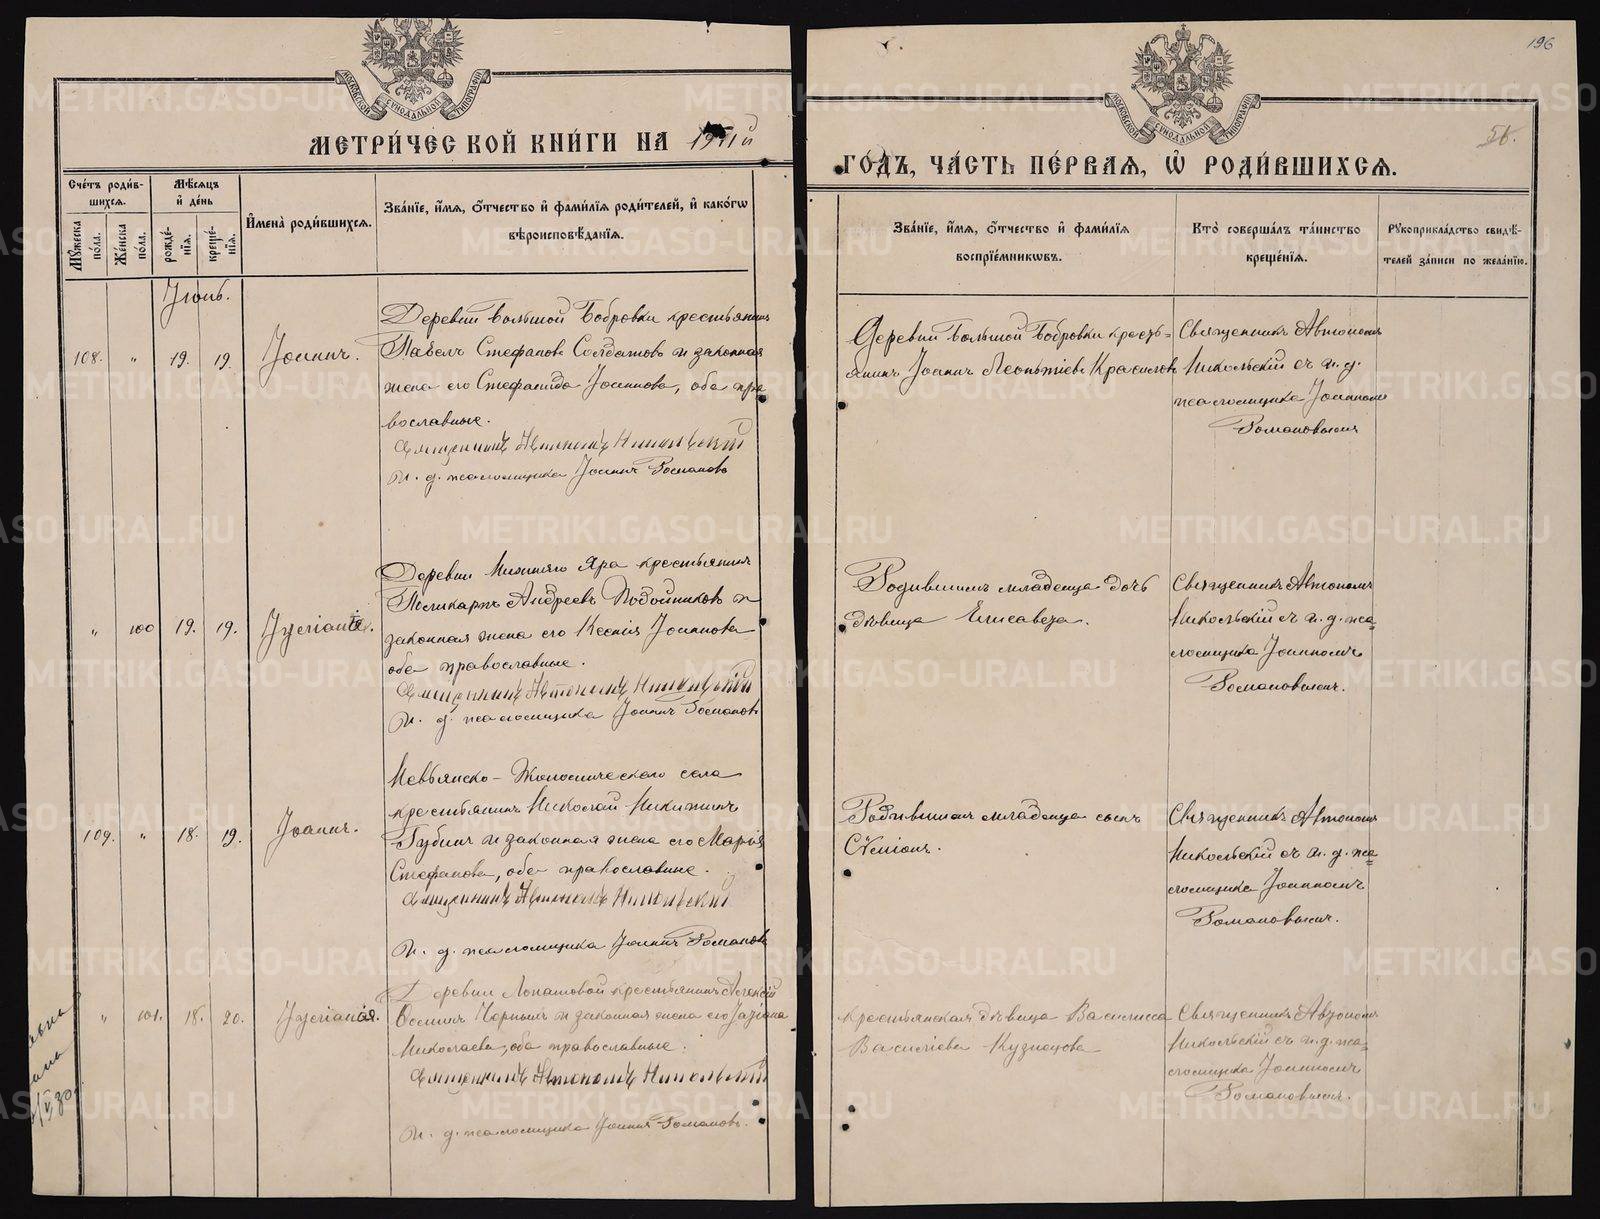 196
МОСКОВСКОЙ СѴНОДАЛЬНОЙ ТИПОГРАФІИ
МОСКОВСКОЙ СѴНОДАЛЬНОЙ ТИПОГРАФІИ
56.
МЕТРИ́ЧЕСКОЙ КНИ́ГИ НА 19 й
ГО́ДЪ, ЧА́СТЬ ПЕ́РВАѦ, Ѿ РОДИ́ВШИХСѦ.
Сче́тъ роди́в-
шихсѧ.
Мѣ́сѧцъ
и҆ де́нь
Мꙋ́жеска
по́ла.
Же́нска
по́ла.
рожде́-
нїѧ.
креще́-
нїѧ.
И҆мена̀ роди́вшихсѧ.
Зва́нїе, и҆́мѧ, ѻ҆́тчество и҆ фами́лїѧ роди́телей, и҆ како́гѡ
вѣроисповѣ́данїѧ.
Зва́нїе, и҆́мѧ, ѻ҆́тчество и҆ фами́лїѧ
воспрїе́мникѡвъ.
Кто̀ соверша́лъ та́инство
креще́нїѧ.
Рꙋкоприкла́дство свидѣ́-
телей за́писи по жела́нїю.
Іюнь.
108. „ 19. 19. Іоаннъ.
Деревни Большой Бобровки крестьянинъ
Павелъ Стефановъ Солдатовъ и законная
жена его Стефанида Іоаннова, оба пра
вославные.
Священникъ Автономъ Никольскій
И. д. псаломщика Іоаннъ Романовъ
Деревни Большой Бобровки кресть=
янинъ Іоаннъ Леонтіевъ Красиловъ
Священникъ Автономъ
Никольскій съ и. д.
псаломщика Іоанномъ
Романовымъ
„ 100 19. 19. Іуліанія.
Деревни Нижняго Яра крестьянинъ
Поликарпъ Андреевъ Подойниковъ и
законная жена его Ксенія Іоаннова
оба православные.
Священникъ Автономъ Никольскій
И. д. псаломщика Іоаннъ Романовъ
Родившимъ младенца дочь
дѣвица Елисавета.
Священникъ Автономъ
Никольскій съ и. д. пса=
ломщика Іоанномъ
Романовымъ.
109. „ 18. 19. Іоаннъ.
Невьянско-Экономическаго села
крестьянинъ Николай Никитинъ
Губинъ и законная жена его Марія
Стефанова, оба православные.
Священникъ Автономъ Никольскій
И. д. псаломщика Іоаннъ Романовъ
Родившимъ младенца сынъ
Сѵмеонъ.
Священникъ Автономъ
Никольскій съ и. д. пса=
ломщика Іоанномъ
Романовымъ.
„ 101. 18. 20. Іуліанія.
Деревни Лопатовой крестьянинъ Алексій
Осиповъ Черныхъ и законная жена его Татіана
Николаева, оба православные.
Священникъ Автономъ Никольскій
И. д. псаломщика Іоаннъ Романовъ.
крестьянская дѣвица Василисса
Василіева Кузнецова
Священникъ Автономъ
Никольскій съ и. д. пса=
ломщика Іоанномъ
Романовымъ.
METRIKI.GASO-URAL.RU